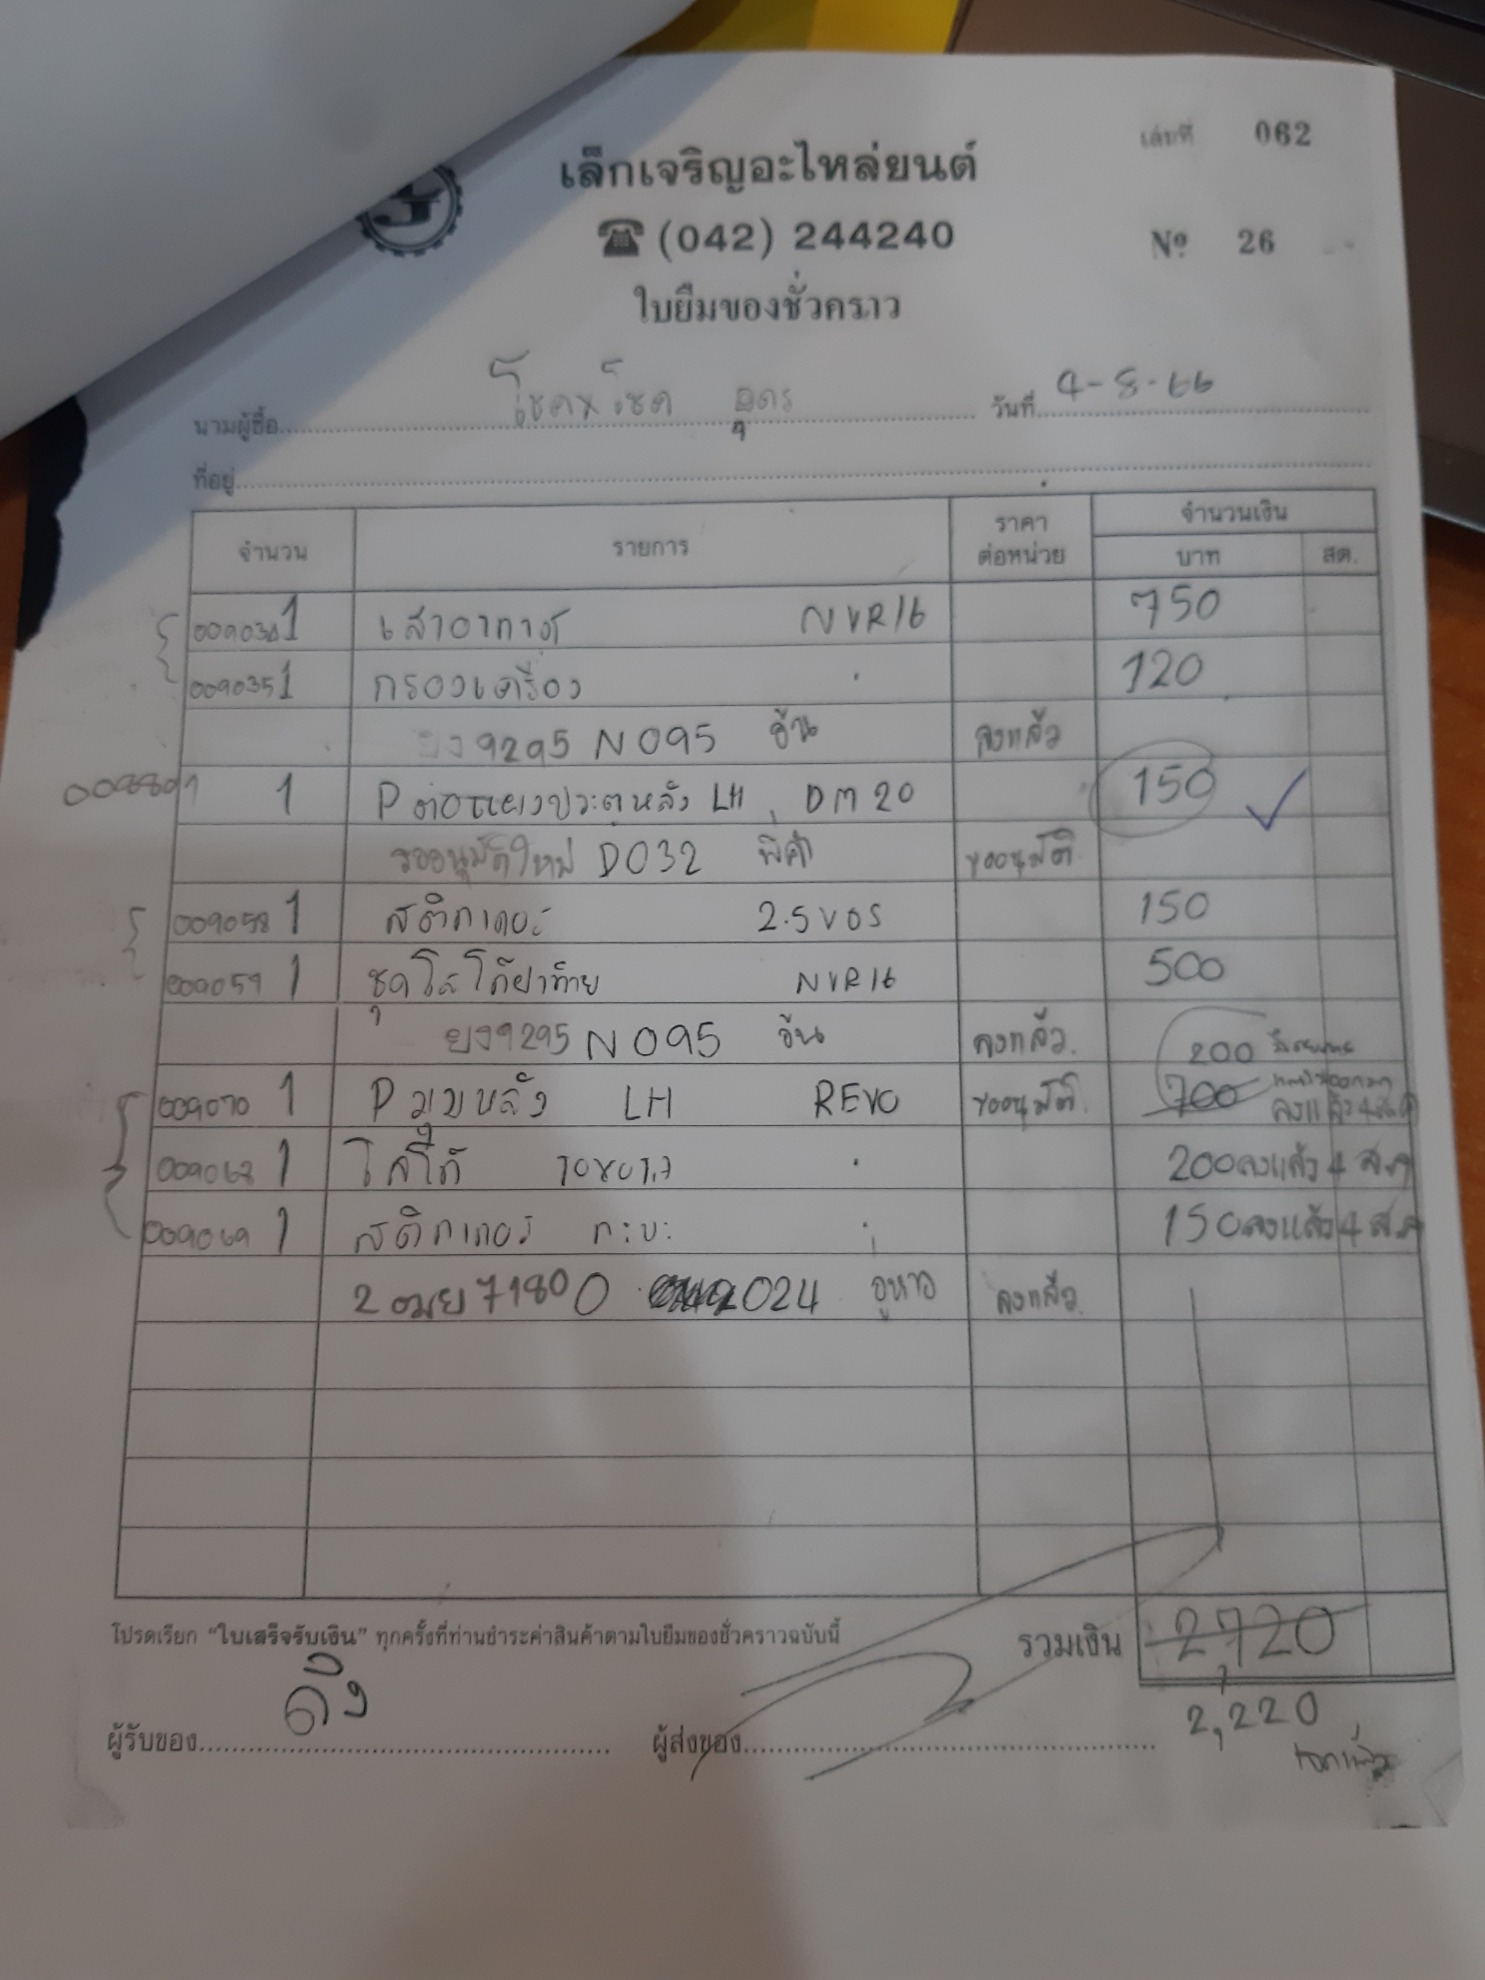 เล่มที่ 062
เล็กเจริญอะไหล่ยนต์
(042) 244240
Nº 26
ใบยืมของชั่วคราว
นามผู้ซื้อ โชค x โชค อุดร วันที่ 4-8-66
ที่อยู่
จำนวน รายการ ราคาต่อหน่วย จำนวนเงิน
บาท สต.
1 เสาอากาศ NVR16 750
0090351 กรองเครื่อง " 120
ยง 9295 N095 อ้น ลงแล้ว
1 P ประตูหลัง LH DM20 150
รออนุมัติใหม่ D032 ขออนุมัติ
009058 1 สติกเกอร์ 2.5VGS 150
009059 1 ชุดโลโก้ฝาท้าย NVR16 500
ยง9295 N095 อ้น ลงแล้ว
200
009070 1 P มุมหลัง LH REVO ขออนุมัติ 700
009068 1 โลโก้ TOYOTA " 200 ลงแล้ว 4 ส.ค
009069 1 สติกเกอร์ กะบะ " 150 ลงแล้ว 4 ส.ค
2 ฒย 7180 O024 ลงแล้ว
โปรดเรียก "ใบเสร็จรับเงิน" ทุกครั้งที่ท่านชำระค่าสินค้าตามใบยืมของชั่วคราวฉบับนี้
รวมเงิน 2,720
2,220
ผู้รับของ ดิ่ง ผู้ส่งของ